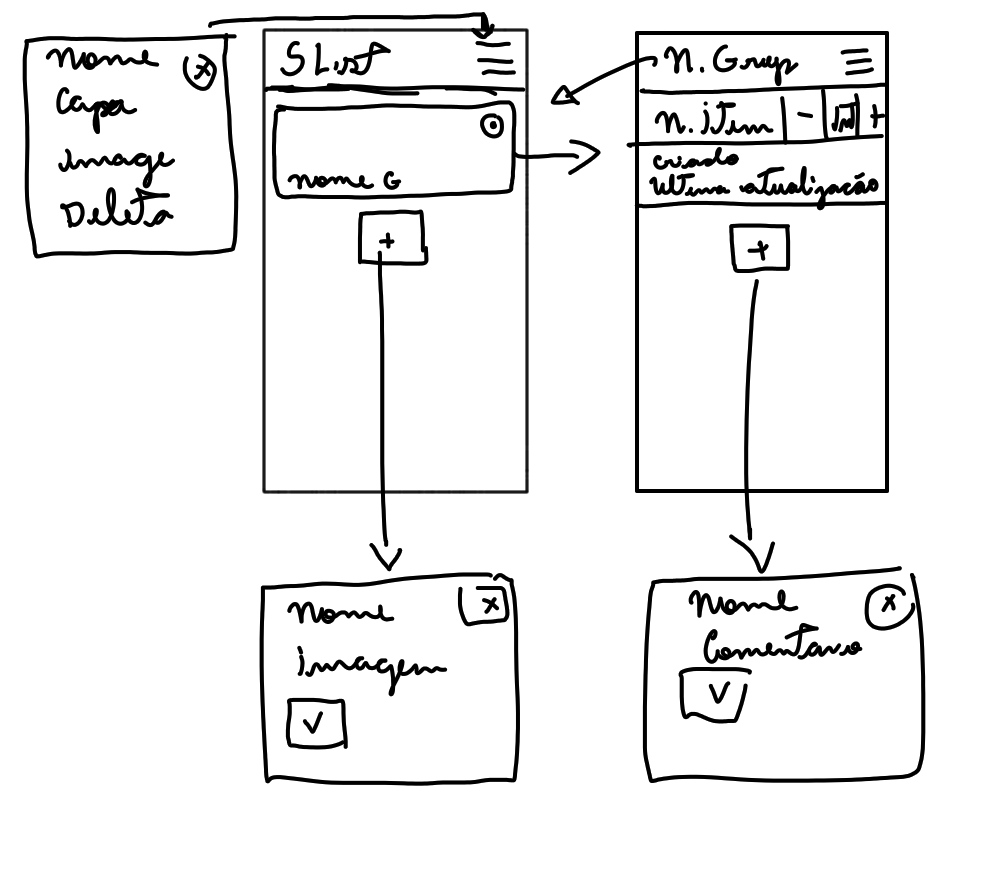 Nome
X
Capa
image
Deleta
S List
nome G
+
N. Grup
N. item
-
+
criado
ultima atualização
+
Nome
X
imagem
V
Nome
X
Comentaro
V